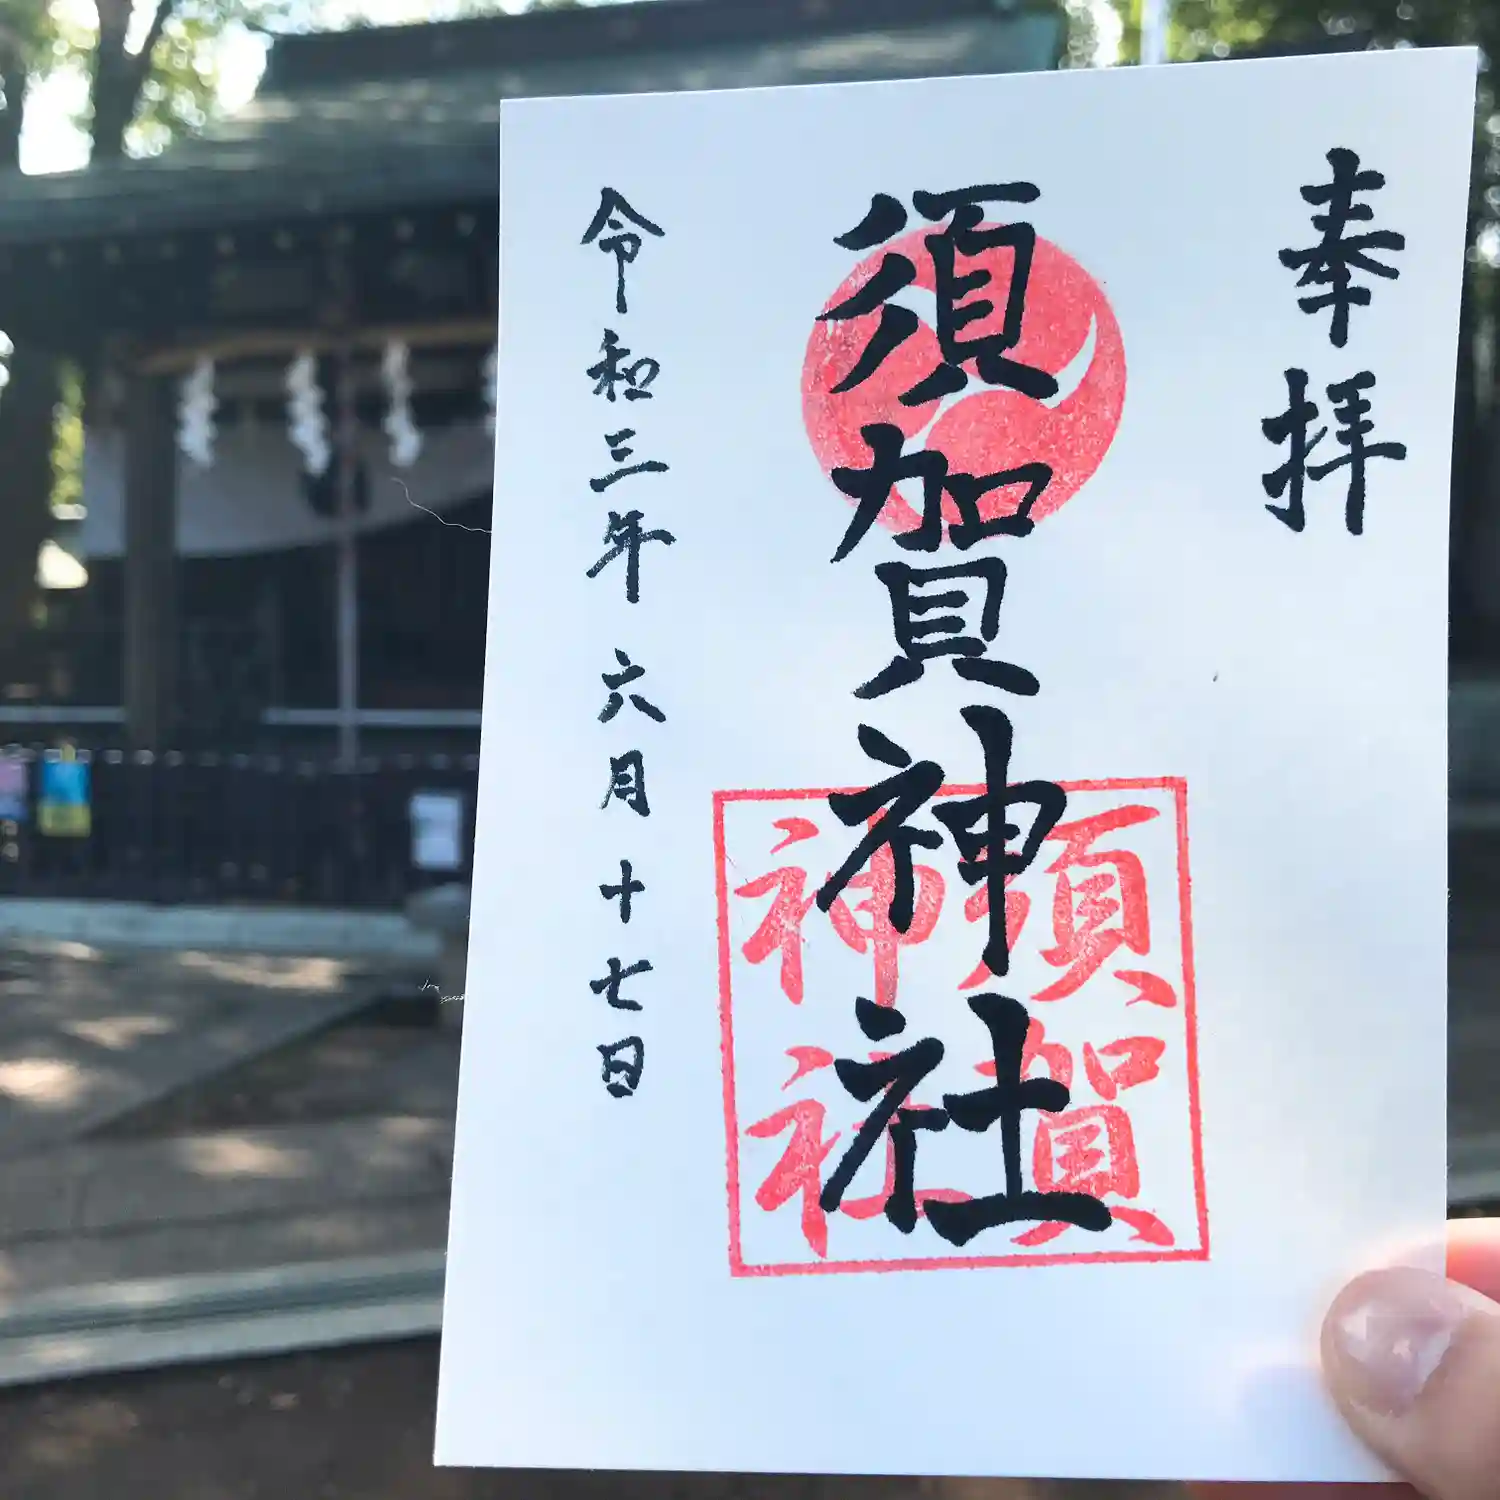 奉拝
須加賀神社
須賀
神社
令和三年六月十七日